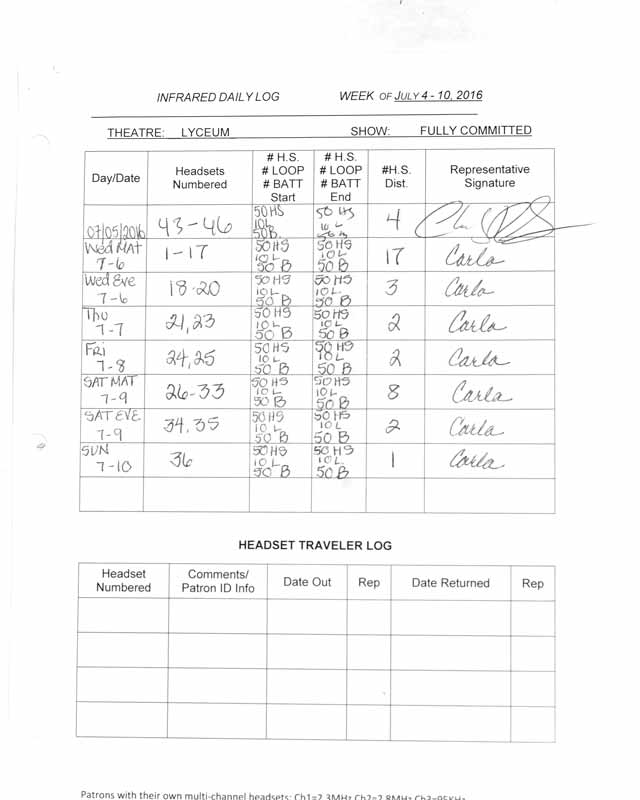 INFRARED DAILY LOG WEEK OF JULY 4 - 10, 2016
THEATRE: LYCEUM SHOW: FULLY COMMITTED
Day/Date Headsets Numbered # H.S. # LOOP # BATT Start # H.S. # LOOP # BATT End #H.S. Dist. Representative Signature
07/05/2016 43-46 50 HS 10L 50B. 50 HS 10 L 50 B 4
Wed MAT 7-6 1-17 50 HS 10 L 50 B 50 HS 10 L 50 B 17 Carla
Wed Eve 7-6 18-20 50 HS 10 L 50 B 50 HS 10 L 50 B 3 Carla
Thu 7-7 21,23 50 HS 10 L 50 B 50 HS 10 L 50 B 2 Carla
FRI 7-8 24,25 50 HS 10 L 50 B 50 HS 10 L 50 B 2 Carla
SAT MAT 7-9 26-33 50 HS 10 L 50 B 50 HS 10 L 50 B 8 Carla
SAT EVE 7-9 34,35 50 HS 10 L 50 B 50 HS 10 L 50 B 2 Carla
SUN 7-10 36 50 HS 10 L 50 B 50 HS 10 L 50 B 1 Carla
HEADSET TRAVELER LOG
Headset Numbered Comments/ Patron ID Info Date Out Rep Date Returned Rep
Patrons with their own multi-channel headsets: Ch1=2.3MHz Ch2=2.8MHz Ch3=95KHz